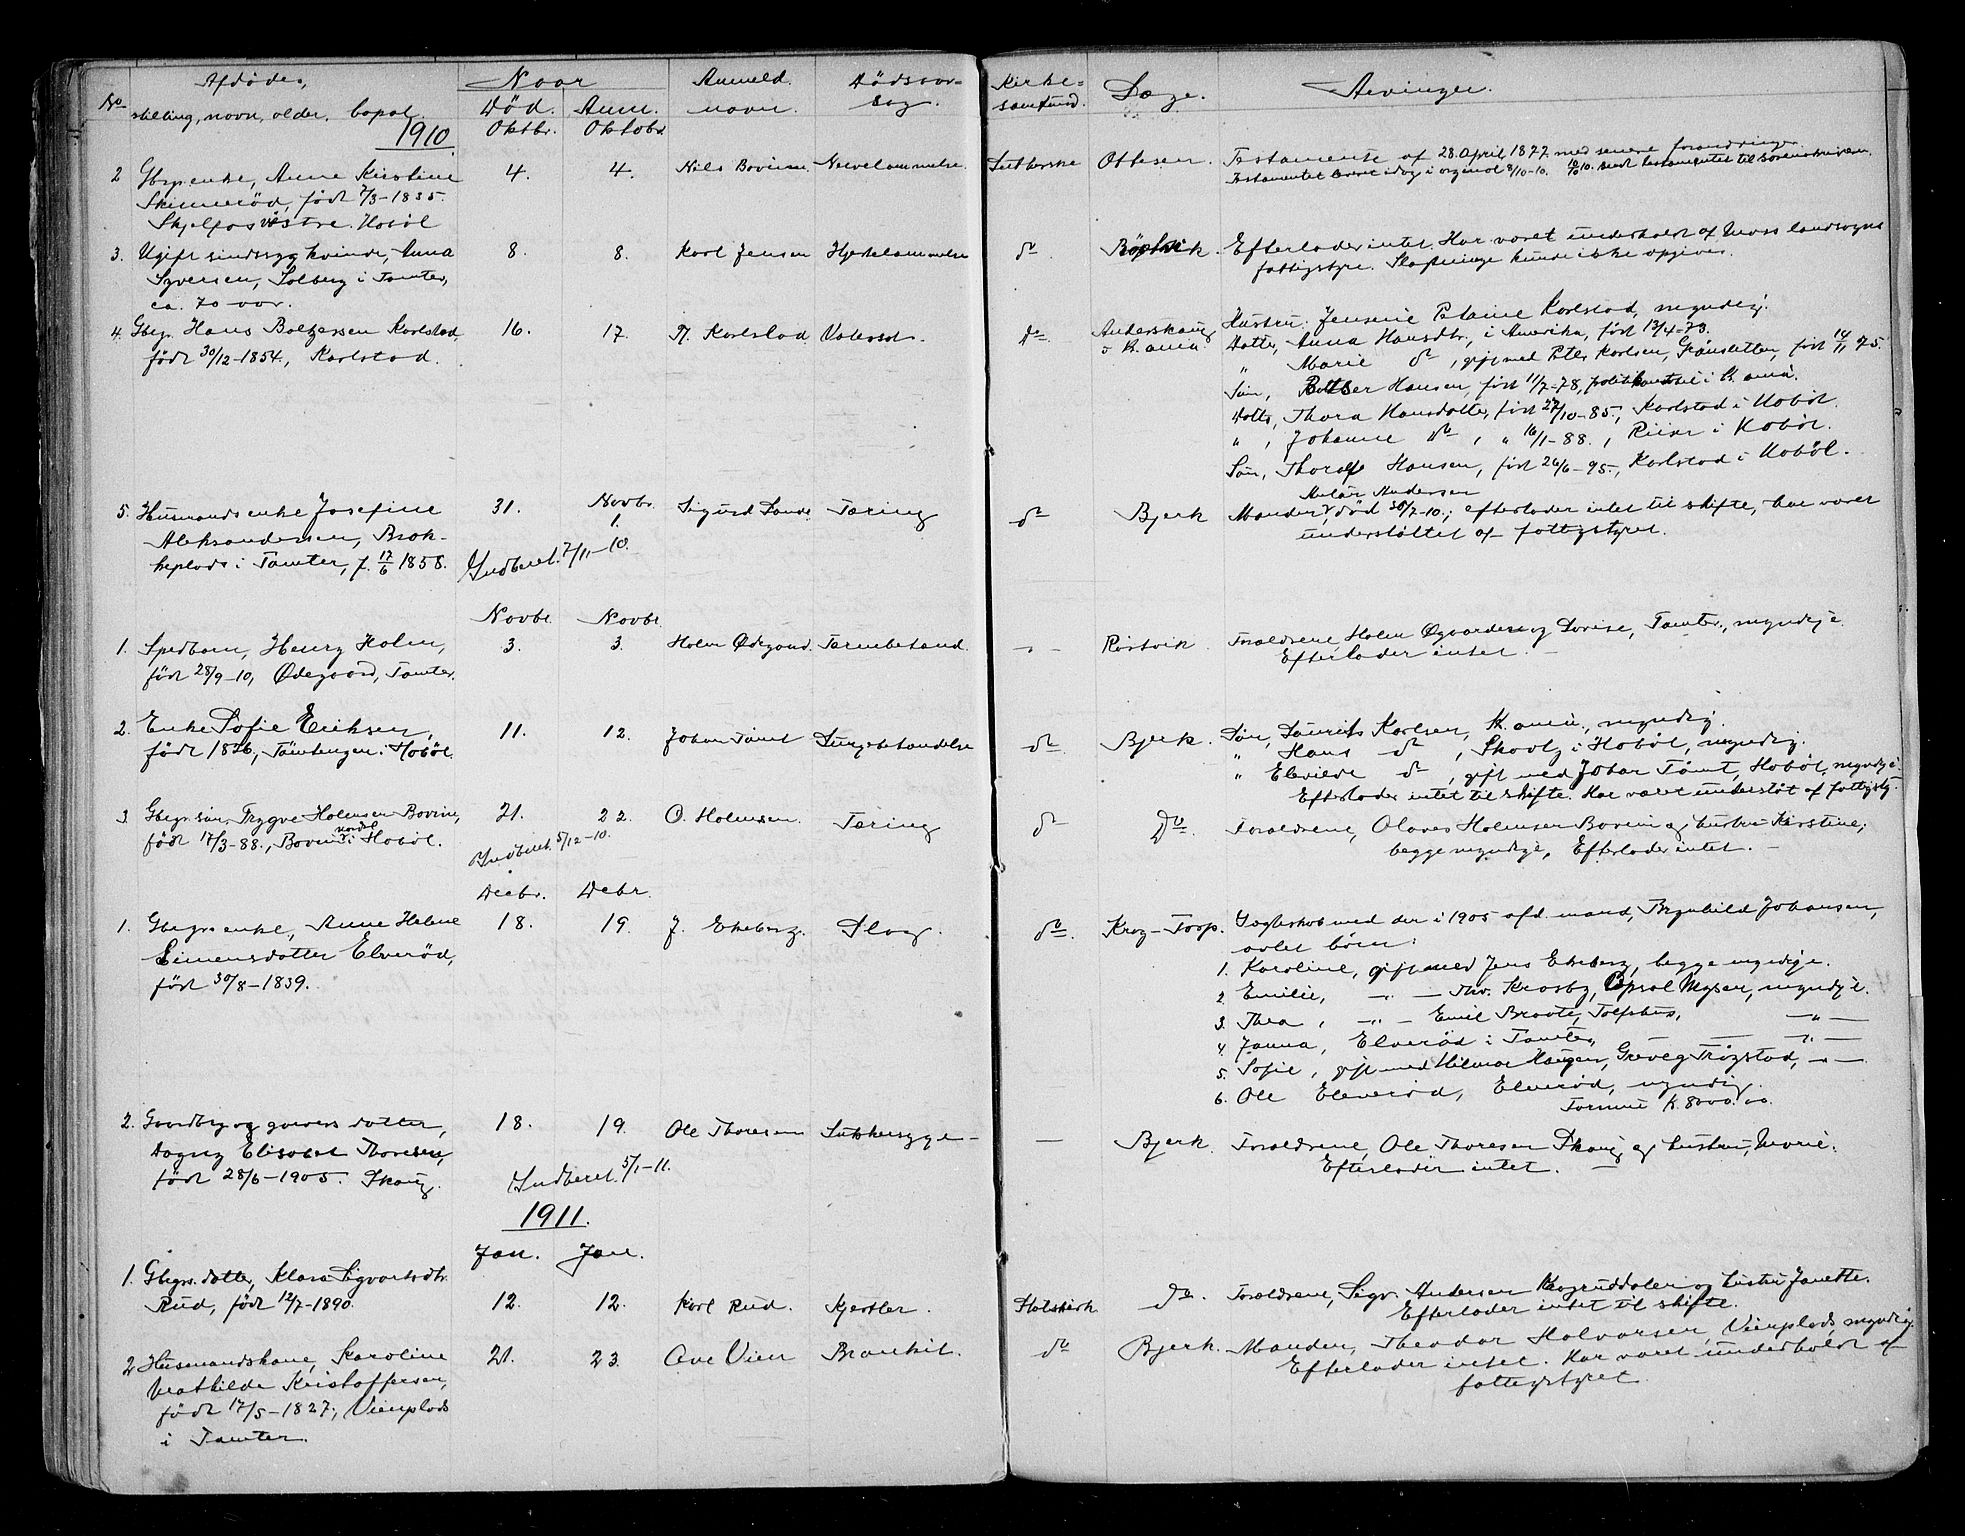 No
Afdødes
stilling, navn, alder, bopæl.
Naar
Død.
Anm.
Anmeld.
navn.
Dødsaar-
sag.
Kirke-
samfund.
Læge.
Arvinger.
1910
Oktbr. Oktobr.
2 Gbrgs enke, Anne Kirstine
Skinnerød, født 7/3-1835.
Skjelfos vestre. Hobøl
4. 4. Nils Bovim Nervelammelse. Lutherske Ottesen.
Testamente af 28. April 1877 med senere forandringer.
3. Ugift sindssyg kvinde, Anna
Syversen, Solberg i Tomter,
ca. 70 aar.
8. 8. Karl Jensen Hjertelammelse do
Efterlader intet. Har været underholdt af Moss landsogns
fattigstyre. Slægtninge kunde ikke opgives.
4. Gbgr. Hans Boltzersen Karlstad,
født 30/12-1854, Karlstad.
16. 17. Karlstad do Anderskaug
o K.ania.
Hustru: Jensine Petrine Karlstad, myndig.
Datter, Anna Hansdtr, i Amerika, født 13/4-73.
" Marie do, gift med Peter Karlsen, Grønsletten, født 14/11 75.
Søn, Hansen, født 11/7-78, i K.ania.
Datter, Thora Hansdatter, født 27/10-85, Karlstad i Hobøl.
", Johanne do, " 16/1-88., i Hobøl.
Søn, Thoralf Hansen, født 26/6-95, Karlstad i Hobøl.
5. Husmandsenke Josefine
Aleksandersen, Brek-
keplads i Tomter, f. 17/6 1858.
31. Novbr.
1. Sigurd Sande Tæring do Bjerk
Andersen
Manden død 30/7-10; efterlader intet til skifte, har været
understøttet af fattigstyret.
Indberet. 7/11-10.
Novbr. Novbr.
1. Spedbarn, Henry Holm,
født 28/9-10, Ødegaard, Tomter.
3. 3. Holm Ødegaard. Tarmbetænd. Røstvik
Forældrene, Holm Øgaarden og Lovise, Tomter, myndige.
Efterlader intet.
2. Enke Sofie Eriksen,
født 1826, i Hobøl.
11. 12. Johan Tømt Lungebetændelse do Bjerk.
Søn, Laurits Karlsen, K.ania, myndig.
" Hans do, i Hobøl, myndig.
" Elevilde do, gift med Johan Tømt, Hobøl, myndige
Efterlader intet til skifte. Har været understøt af fattigsty.
3. Gbgr. søn, Trygve Holmsen Bovim,
født 17/3-88., Bovim nordre i Hobøl.
21. 22. O. Holmsen. Tæring do do
Forældrene, Olaves Holmsen Bovim og hustru Kirstine,
begge myndige, Efterlader intet.
Indberet 5/12-10.
Decbr. Debr.
1. Gbrgs enke, Anne Helene
Simensdatter Elverød,
født 30/8-1839.
18. 19 J. Ekeberg. Slag. do. Krog-Torp.
Ægteskab med den i 1905 afd. mand, Johansen,
avlet børn:
1. Karoline, gift med Jens Ekeberg, begge myndige.
2. Emilie, -"- Thv. Krosby, Mysen, myndige.
3. Thea, -"- Emil Braate, -"-
4. Janna, Elverød i Tomter, -"-
5. Sofie, gift med Hilmar Haugen, Greveg Trøgstad, -"-
6. Ole Elverød, Elverød, myndig.
Formue K. 8000.00.
2. Gaardbrugerens datter,
Dagny Elisabet Thoresen,
født 28/6-1905. Skaug.
18. 19. Ole Thoresen Sukkersyge - Bjerk.
Forældrene, Ole Thoresen Skaug og hustru, Marie.
Efterlader intet.
Indberet 5/1-11.
1911.
Jan. Jan.
1. Gbgrs. datter, Klara Sigvartsdtr.
Rud, født 12/7-1890.
12. 12. Karl Rud. Kjertler. Statskirk do.
Forældrene, Sigv. Andersen og hustru Janette.
Efterlader intet til skifte.
2. Husmandskone, Karoline
Mathilde Kristoffersen,
født 17/5-1827, Vienplads
i Tomter.
21. 23. Ove Vien Bronkit. do Bjerk.
Manden, Theodor Halvorsen, Vienplads, myndig.
Efterlader intet. Har været underholdt af
fattigstyret.